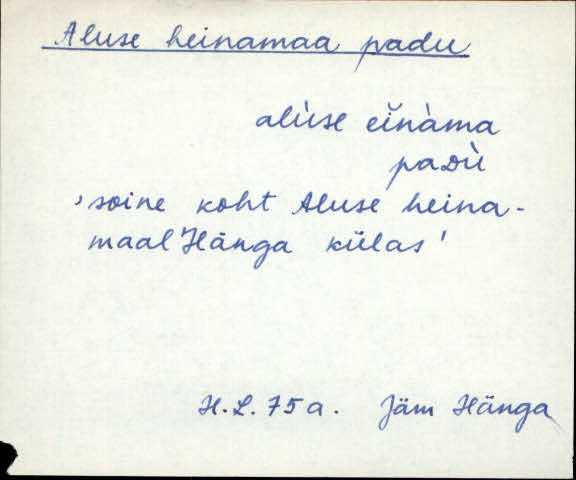 Aluse heinamaa padu
alùse eĭnàma
paᴅù
‚soine koht Aluse heina-
maal Hänga külas'
H.L.75a. Jäm Hänga